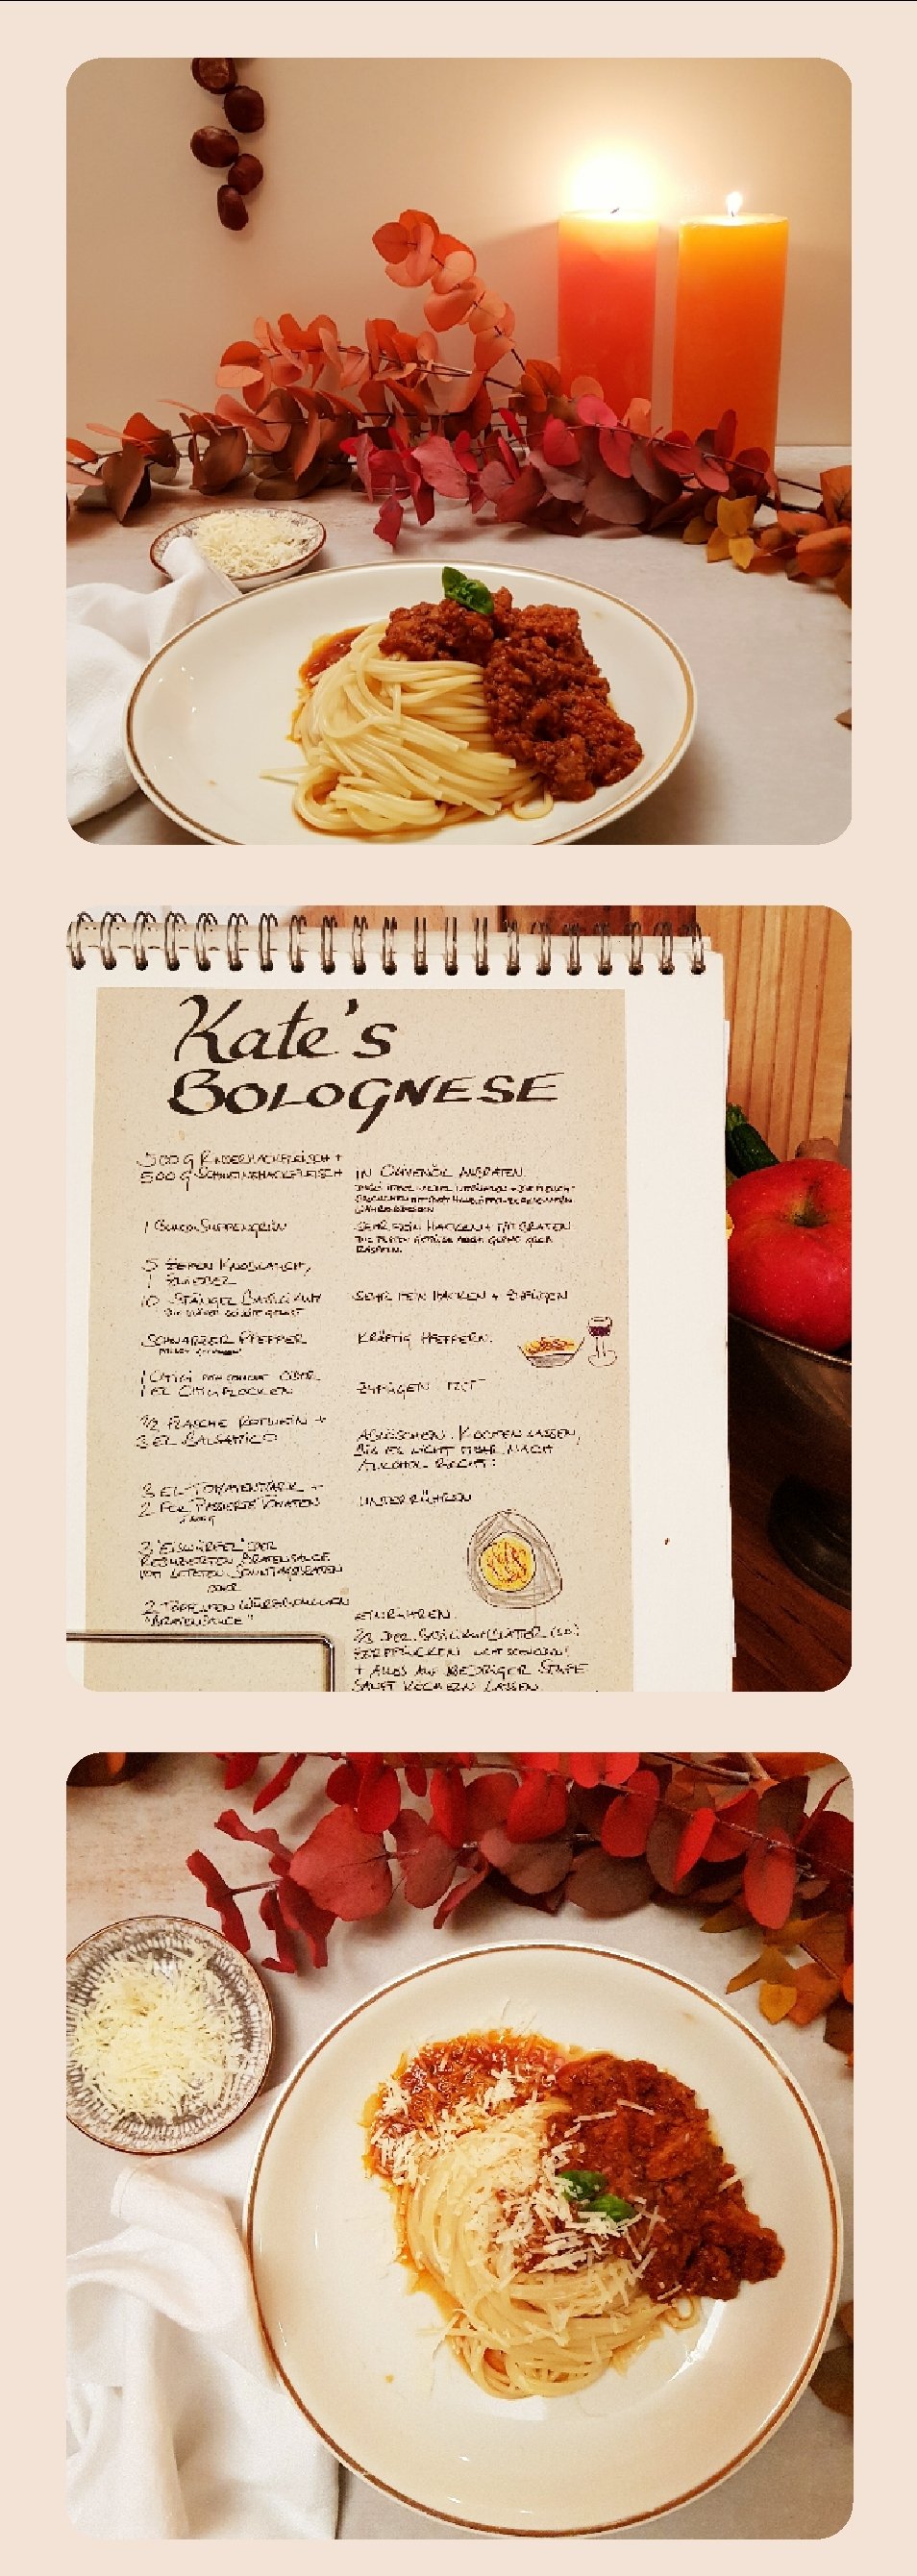 Kate's
BOLOGNESE
500 g RINDERHACKFLEISCH +
500 g SCHWEINEHACKFLEISCH
IN OLIVENÖL ANBRATEN.
1 BUND SUPPENGRÜN
SEHR FEIN HACKEN + MITBRATEN
RASPELN.
5 ZEHEN KNOBLAUCH,
1
10 STÄNGEL BASILIKUM
SEHR FEIN HACKEN + ZUFÜGEN
SCHWARZER PFEFFER
KRÄFTIG PFEFFERN.
1 CHILI ODER
1 EL CHILIFLOCKEN
ZUFÜGEN
1/2 FLASCHE ROTWEIN +
3 EL BALSAMICO
ABLÖSCHEN. KOCHEN LASSEN,
BIS ES NICHT MEHR NACH
ALKOHOL RIECHT!
3 EL TOMATENMARK +
2 PASSIERTE TOMATEN
UNTERRÜHREN
3 "EISWÜRFEL" DER
REDUZIERTEN BRATENSAUCE
VOM LETZTEN SONNTAGSBRATEN
ODER
2
"BRATENSAUCE"
EINRÜHREN.
2/3 DER BASILIKUMBLÄTTER
ZERPFLÜCKEN NICHT SCHNEIDEN!
+ ALLES AUF NIEDRIGER STUFE
SANFT KÖCHELN LASSEN.